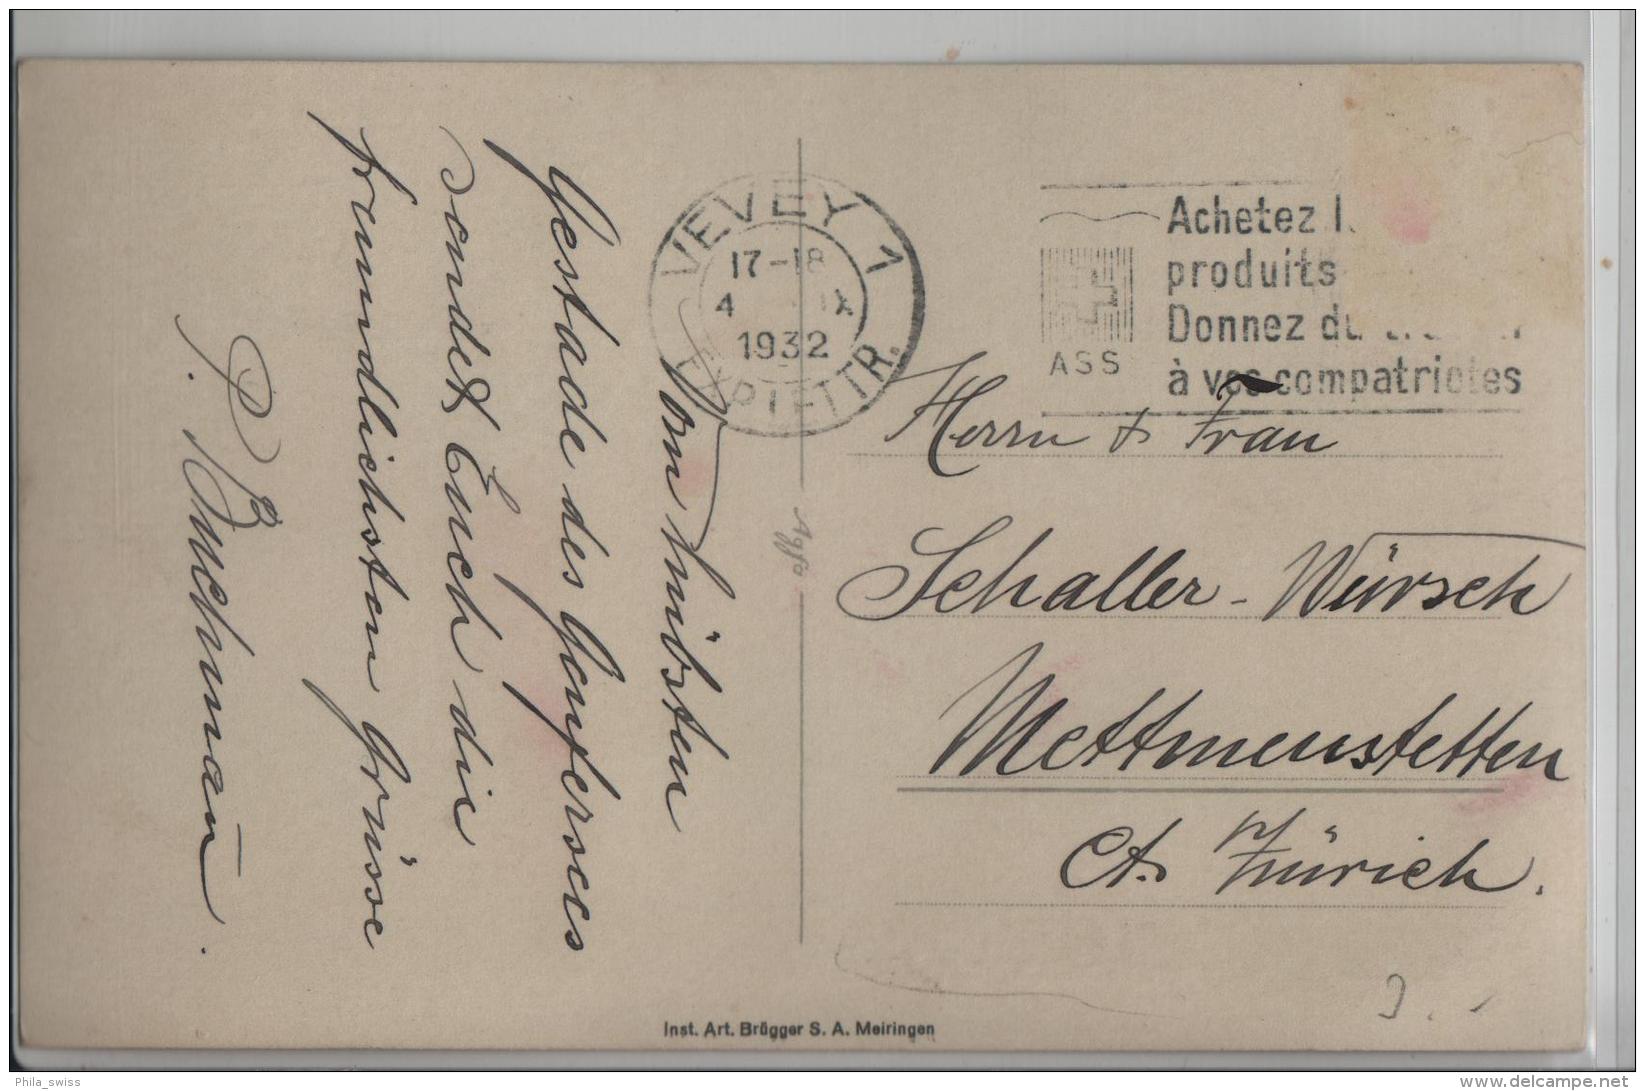 Vom hübsten
Gestade des Genfersees
sendet Euch die
freundlichsten Grüsse
P. Buchmann.
VEVEY 1
17-18
4 IX
1932
EXP. LETTR.
ASS
Achetez l
produits
Donnez du
à vos compatriotes
Herrn & Frau
Schaller-Würsch
Mettmenstetten
Ct. Zürich.
Agfa
Inst. Art. Brügger S. A. Meiringen
Phila_swiss
delcampe.net